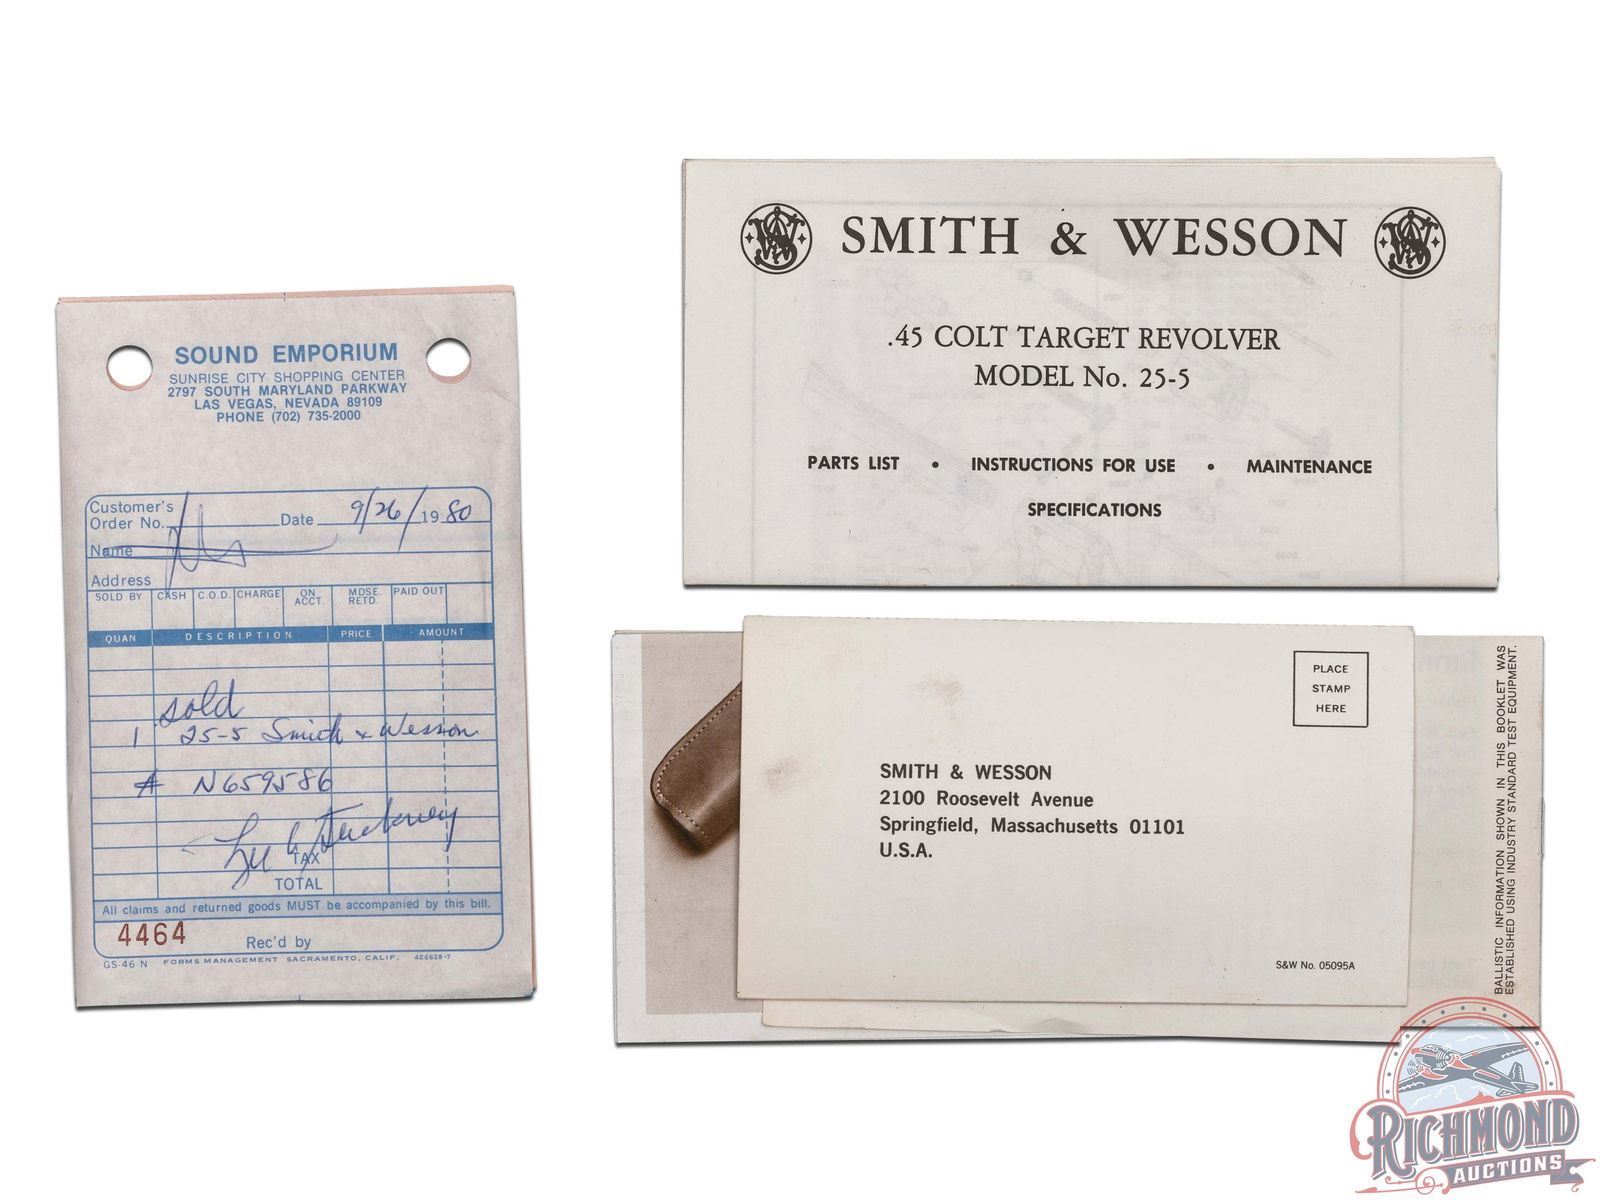 SOUND EMPORIUM
SUNRISE CITY SHOPPING CENTER
2797 SOUTH MARYLAND PARKWAY
LAS VEGAS, NEVADA 89109
PHONE (702) 735-2000
Customer's
Order No. Date 9/26/1980
Name
Address
SOLD BY CASH C.O.D. CHARGE ON ACCT. MDSE. RETD. PAID OUT
QUAN DESCRIPTION PRICE AMOUNT
sold
1 25-5 Smith & Wesson
# N659586
TAX
TOTAL
All claims and returned goods MUST be accompanied by this bill.
4464 Rec'd by
GS-46-N FORMS MANAGEMENT SACRAMENTO, CALIF. 426628-7
SMITH & WESSON
.45 COLT TARGET REVOLVER
MODEL No. 25-5
PARTS LIST • INSTRUCTIONS FOR USE • MAINTENANCE
SPECIFICATIONS
PLACE
STAMP
HERE
SMITH & WESSON
2100 Roosevelt Avenue
Springfield, Massachusetts 01101
U.S.A.
S&W No. 05095A
BALLISTIC INFORMATION SHOWN IN THIS BOOKLET WAS
ESTABLISHED USING INDUSTRY STANDARD TEST EQUIPMENT.
RICHMOND
AUCTIONS